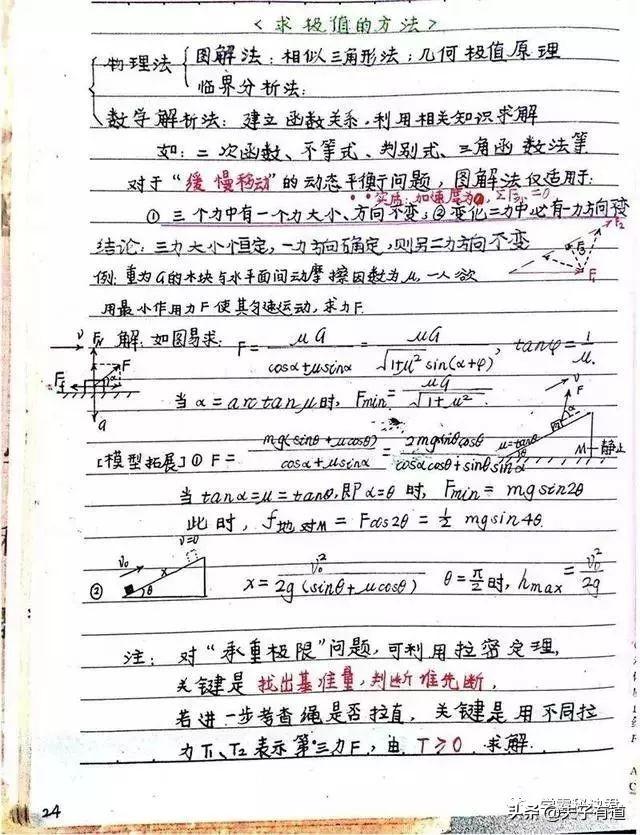 <求极值的方法>
物理法 图解法:相似三角形法;几何极值原理
临界分析法:
数学解析法:建立函数关系,利用相关知识求解
如:二次函数、不等式、判别式、三角函数法等
对于“缓慢移动”的动态平衡问题,图解法仅适用于:
实质:加速度为0, ΣF=0
① 三个力中有一个力大小、方向不变;②变化二力中必有一力方向不变
结论:三力大小恒定,一力方向确定,则另二力方向不变
F₂ F₃ F₁
例:重为G的木块与水平面间动摩擦因数为μ,一人欲
用最小作用力F使其匀速运动,求力F.
解:如图易求: F = μG/(cosα+μsinα) = μG/(√(1+μ²) sin(α+φ)), tanφ = 1/μ.
v F_N F α G
当 α = arctanμ 时, Fmin = μG/√(1+μ²).
v F α μ=tanθ θ M 静止
[模型拓展] ① F = mg(sinθ+μcosθ)/(cosα+μsinα) = 2mgsinθcosθ/(cosαcosθ+sinθsinα)
当 tanα=μ=tanθ, 即α=θ 时, Fmin = mgsin2θ
此时, f地对M = Fcos2θ = ½ mgsin4θ.
v=0 v₀ x θ
② x = v₀²/(2g(sinθ+μcosθ)) θ=π/2时, hmax = v₀²/2g
注: 对“承重极限”问题,可利用拉密定理,
关键是找出基准量,判断谁先断,
若进一步考查绳是否拉直, 关键是用不同拉
力T₁、T₂表示第三力F, 由 T≥0 求解.
24
头条@夫子有道